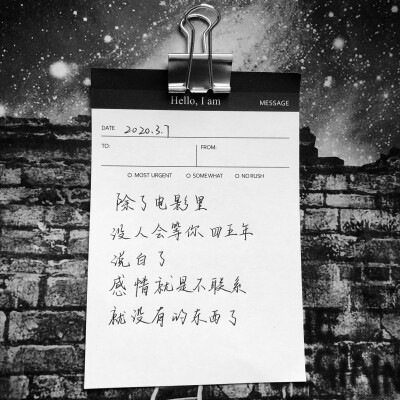 Hello, I am
MESSAGE
DATE 2020.3.7
TO: FROM:
MOST URGENT SOMEWHAT NO RUSH
除了电影里
没人会等你四五年
说白了
感情就是不联系
就没有的东西了